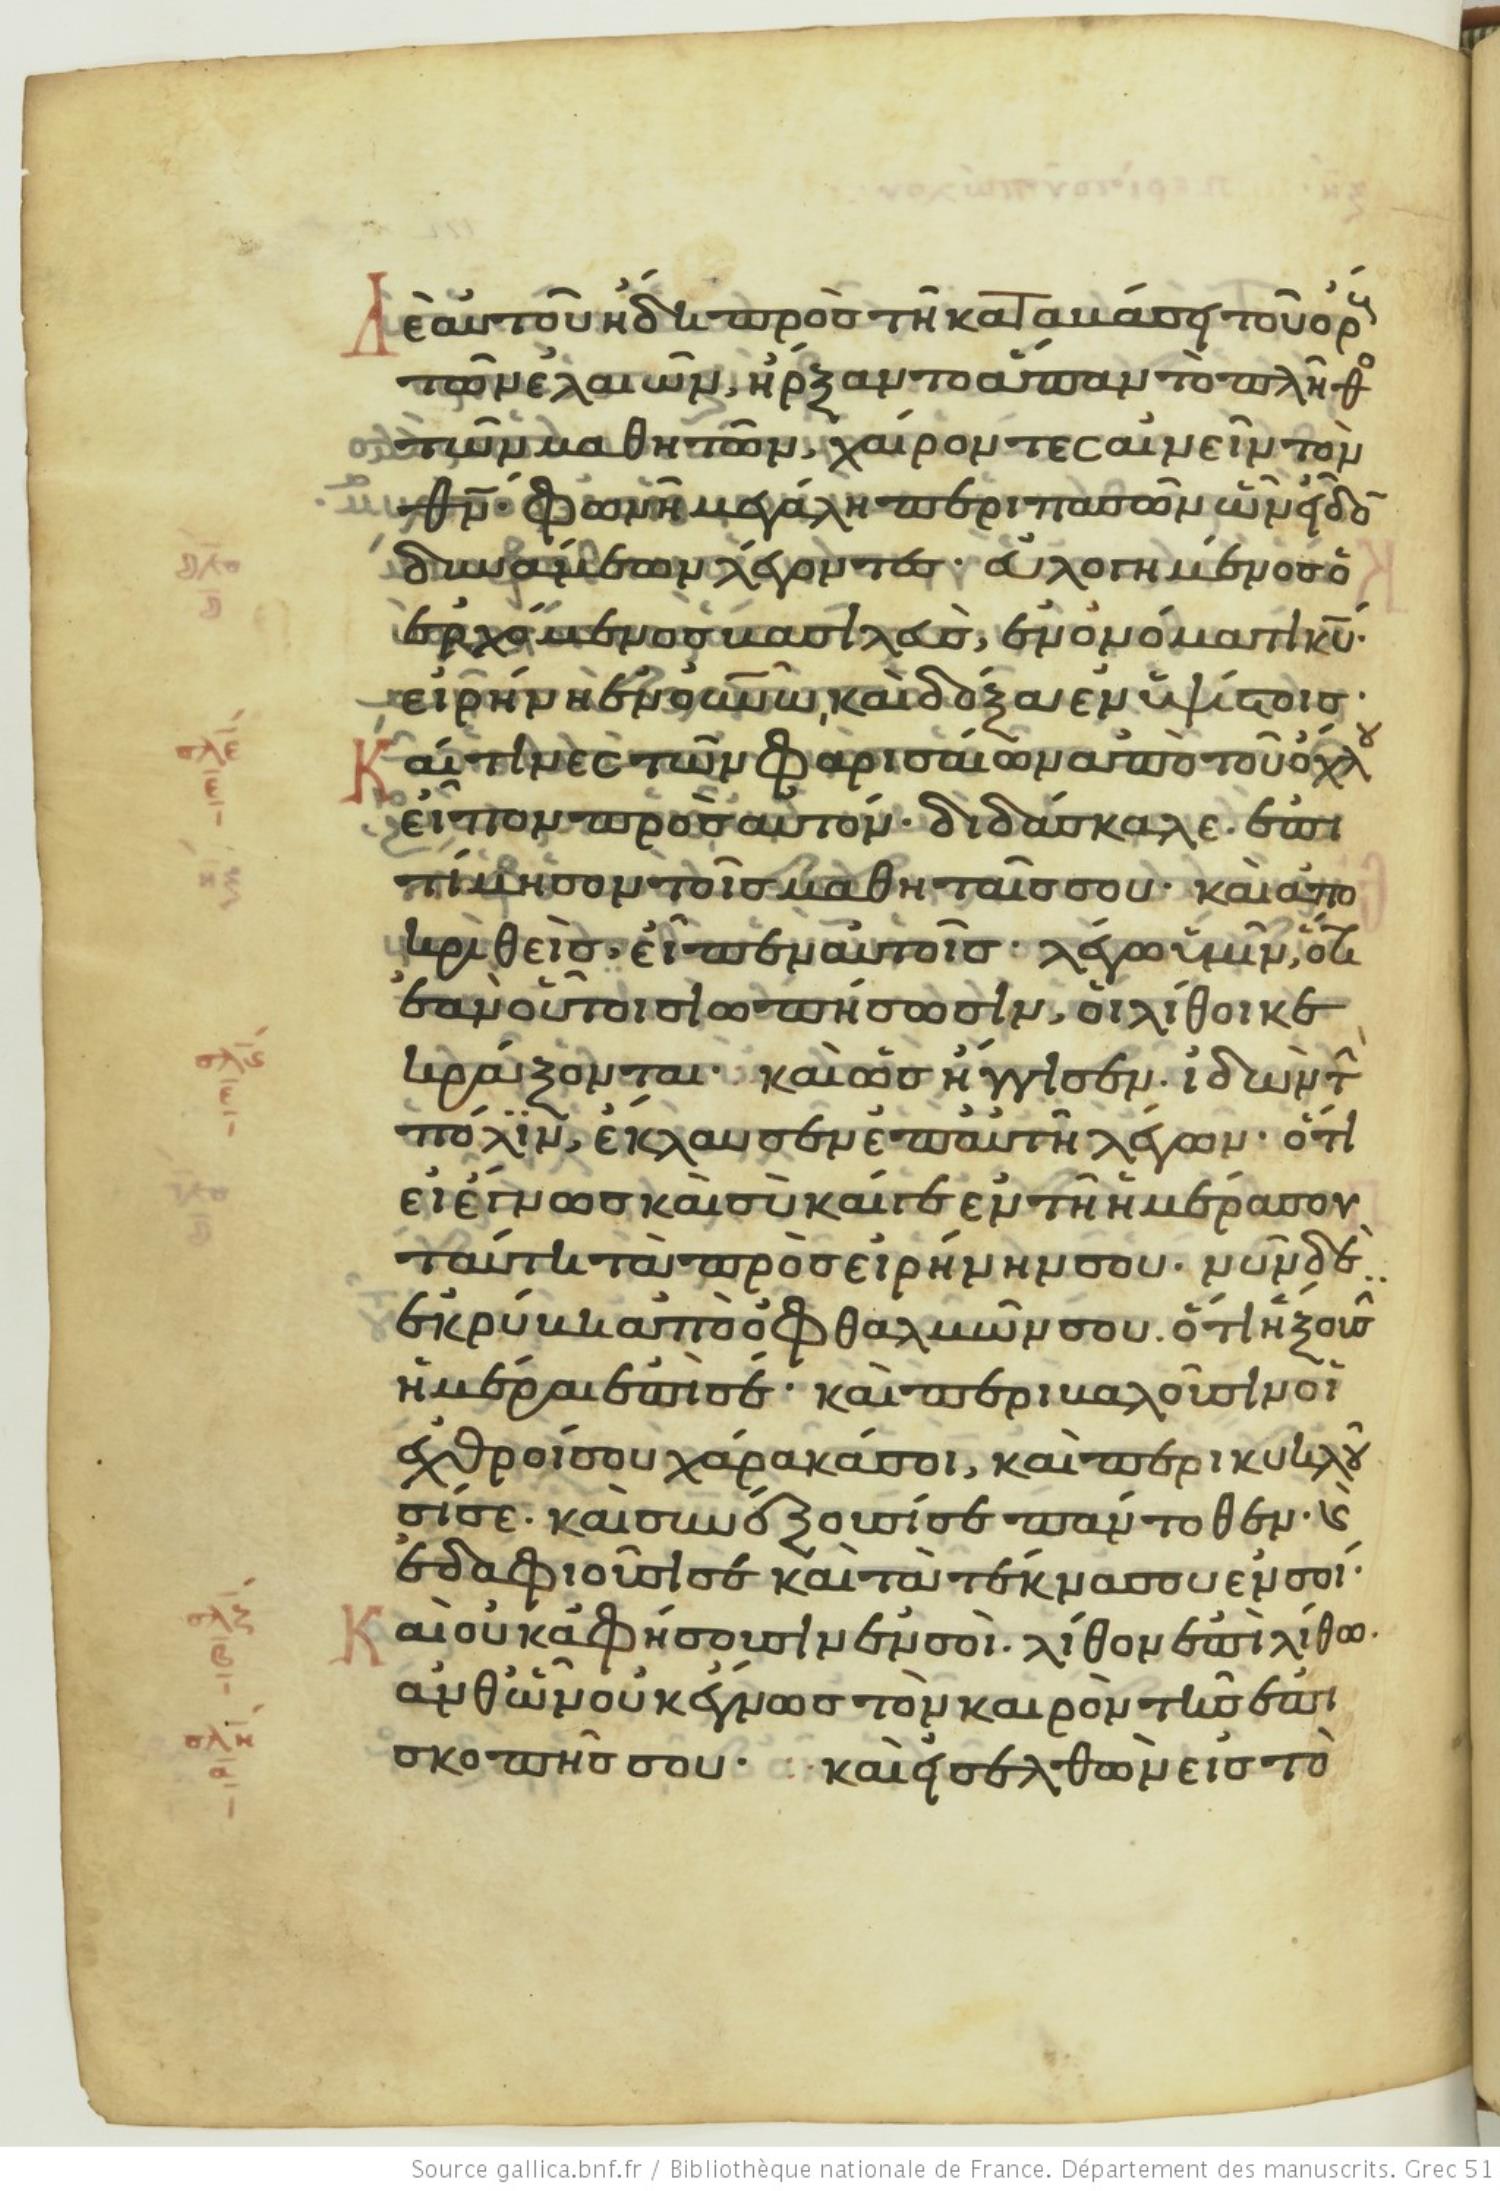 Δὲ αὐτοῦ ἤδη πρὸς τῆ καταβάσει τοῦ ὄρους
τῶν ἐλαιῶν, ἤρξαντο ἅπαν τὸ πλῆθο
τῶν μαθητῶν, χαίροντες αἰνεῖν τὸν
θν̅· φωνῆ μεγάλη περὶ πασῶν ὧν εἶδο
δυνάμεων λέγοντες· εὐλογημένος ὁ
ἐρχόμενος βασιλεὺς, ἐν ὀνόματι κυ̅·
εἰρήνη ἐν οὐνω̅, καὶ δόξα ἐν ὑψίστοις·
Καί τινες τῶν φαρισαίων ἀπὸ τοῦ ὄχλου
εἶπον πρὸς αὐτόν· διδάσκαλε· ἐπι
τίμησον τοῖς μαθηταῖς σου· καὶ ἀπο
κριθεὶς, εἶπεν αὐτοῖς· λέγω ὑμῖν, ὅτι
ἐὰν οὗτοι σιωπήσωσιν, οἱ λίθοι κε
κράξονται· καὶ ὡς ἤγγισεν· ἰδὼν τὴν
πόλϊν, ἔκλαυσεν ἐπ αὐτῆ λέγων· ὅτι
εἰ ἔγνως καὶ σὺ καί γε ἐν τῆ ἡμέρα σου
ταύτη τὰ πρὸς εἰρήνην σου· νῦν δὲ
ἐκρύβη ἀπὸ ὀφθαλμῶν σου. ὅτι ἥξουσιν
ἡμέραι ἐπὶ σέ· καὶ περιβαλοῦσιν οἱ
ἐχθροί σου χάρακά σοι, καὶ περικυκλοῦ
σί σε· καὶ συνέξουσί σε πάντοθεν· καὶ
ἐδαφιοῦσί σε καὶ τὰ τέκνα σου ἐν σοί·
Καὶ οὐκ ἀφήσουσιν ἐν σοὶ· λίθον ἐπὶ λίθω·
ἀνθ ὧν οὐκ ἔγνως τὸν καιρὸν τῆς ἐπι
σκοπῆς σου· καὶ εἰσελθὼν εἰς τὸ
σλε
ε
σλς
ε
σλζ
β
σλη
α
Source gallica.bnf.fr / Bibliothèque nationale de France. Département des manuscrits. Grec 51